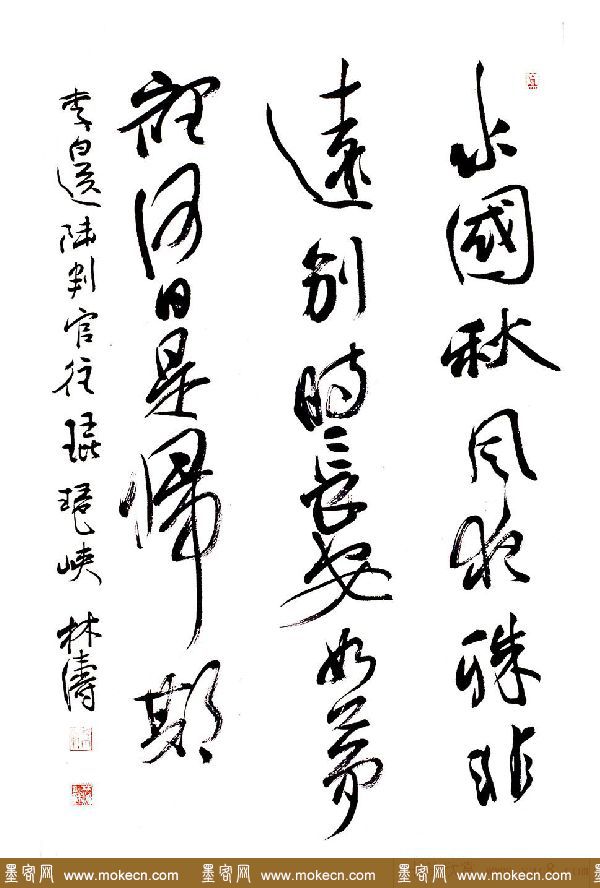 水國秋风夜殊非
遠別時長安如夢
裡何日是歸期
李白送陸判官往琵琶峽 林濤
墨客网 www.mokecn.com 墨客网 www.mokecn.com 墨客网 www.mokecn.com 墨客网 www.mokecn.com